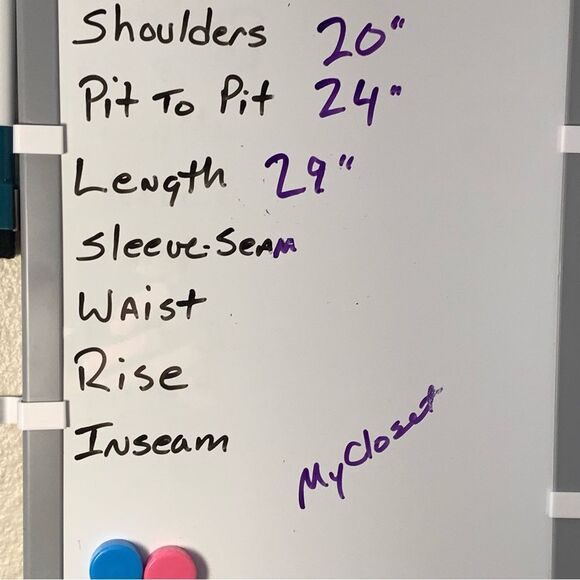 Shoulders 20"
Pit To Pit 24"
Length 29"
Sleeve-Seam
Waist
Rise
Inseam
My Closet